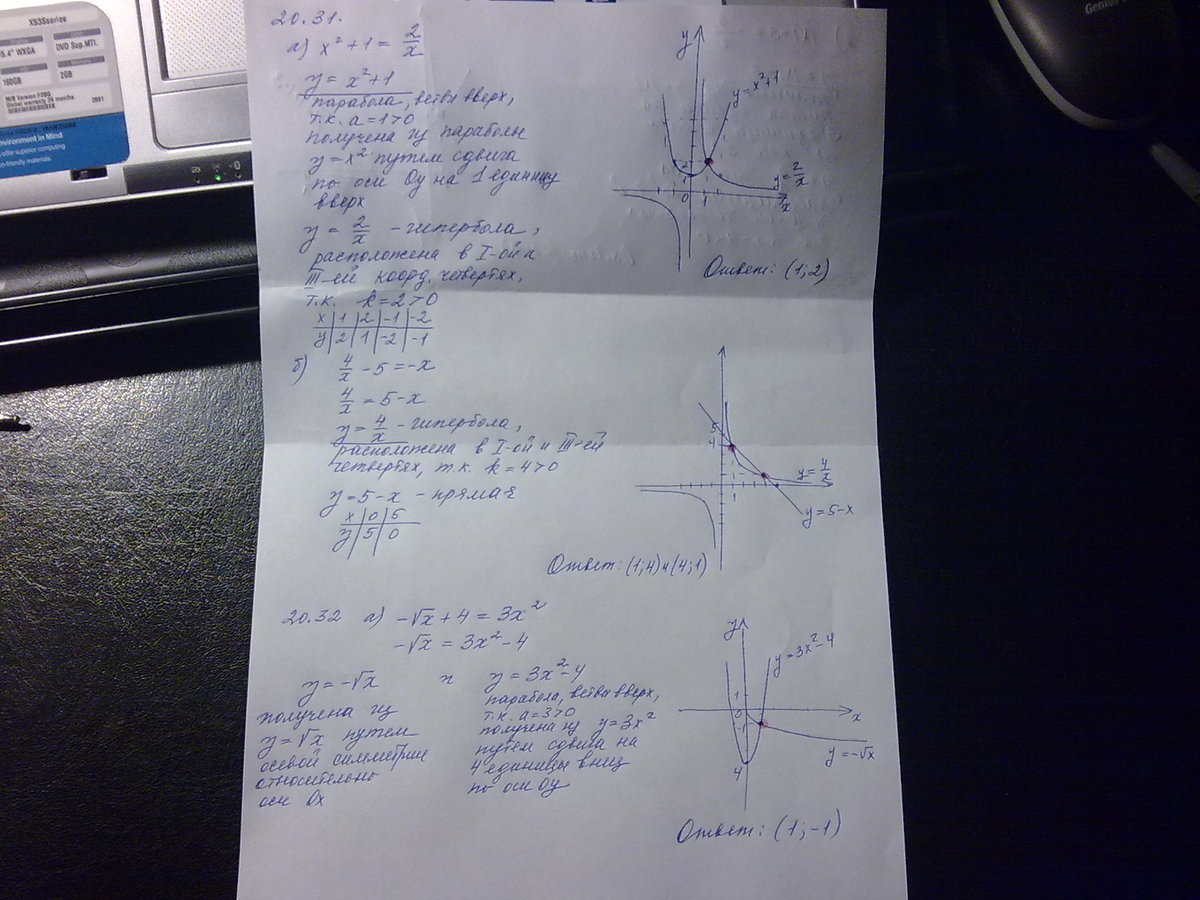 X53Sseries
15.4" WXGA
DVD Sup.MTI.
160GB
2GB
Global warranty 24 months
Environment in Mind
offer superior computing
co-friendly materials.
Genius
20.31.
а) x² + 1 = 2/x
y = x² + 1
парабола, ветви вверх,
т.к. a = 1 > 0
получена из параболы
y = x² путем сдвига
по оси Oy на 1 единицу
вверх
y = 2/x - гипербола,
расположена в I-ой и
III-ей коорд. четвертях,
т.к. k = 2 > 0
x | 1 | 2 | -1 | -2
y | 2 | 1 | -2 | -1
y
y = x² + 1
2
1
0 1
y = 2/x
x
Ответ: (1; 2)
б) 4/x - 5 = -x
4/x = 5 - x
y = 4/x - гипербола,
расположена в I-ой и III-ей
четвертях, т.к. k = 4 > 0
y = 5 - x - прямая
x | 0 | 5
y | 5 | 0
5
4
1
y = 4/x
y = 5 - x
Ответ: (1; 4) и (4; 1)
20.32 а) -√x + 4 = 3x²
-√x = 3x² - 4
y = -√x и y = 3x² - 4
получена из
y = √x путем
осевой симметрии
относительно
оси Ox
парабола, ветви вверх,
т.к. a = 3 > 0
получена из y = 3x²
путем сдвига на
4 единицы вниз
по оси Oy
y
y = 3x² - 4
1
0
-1
x
y = -√x
4
Ответ: (1; -1)